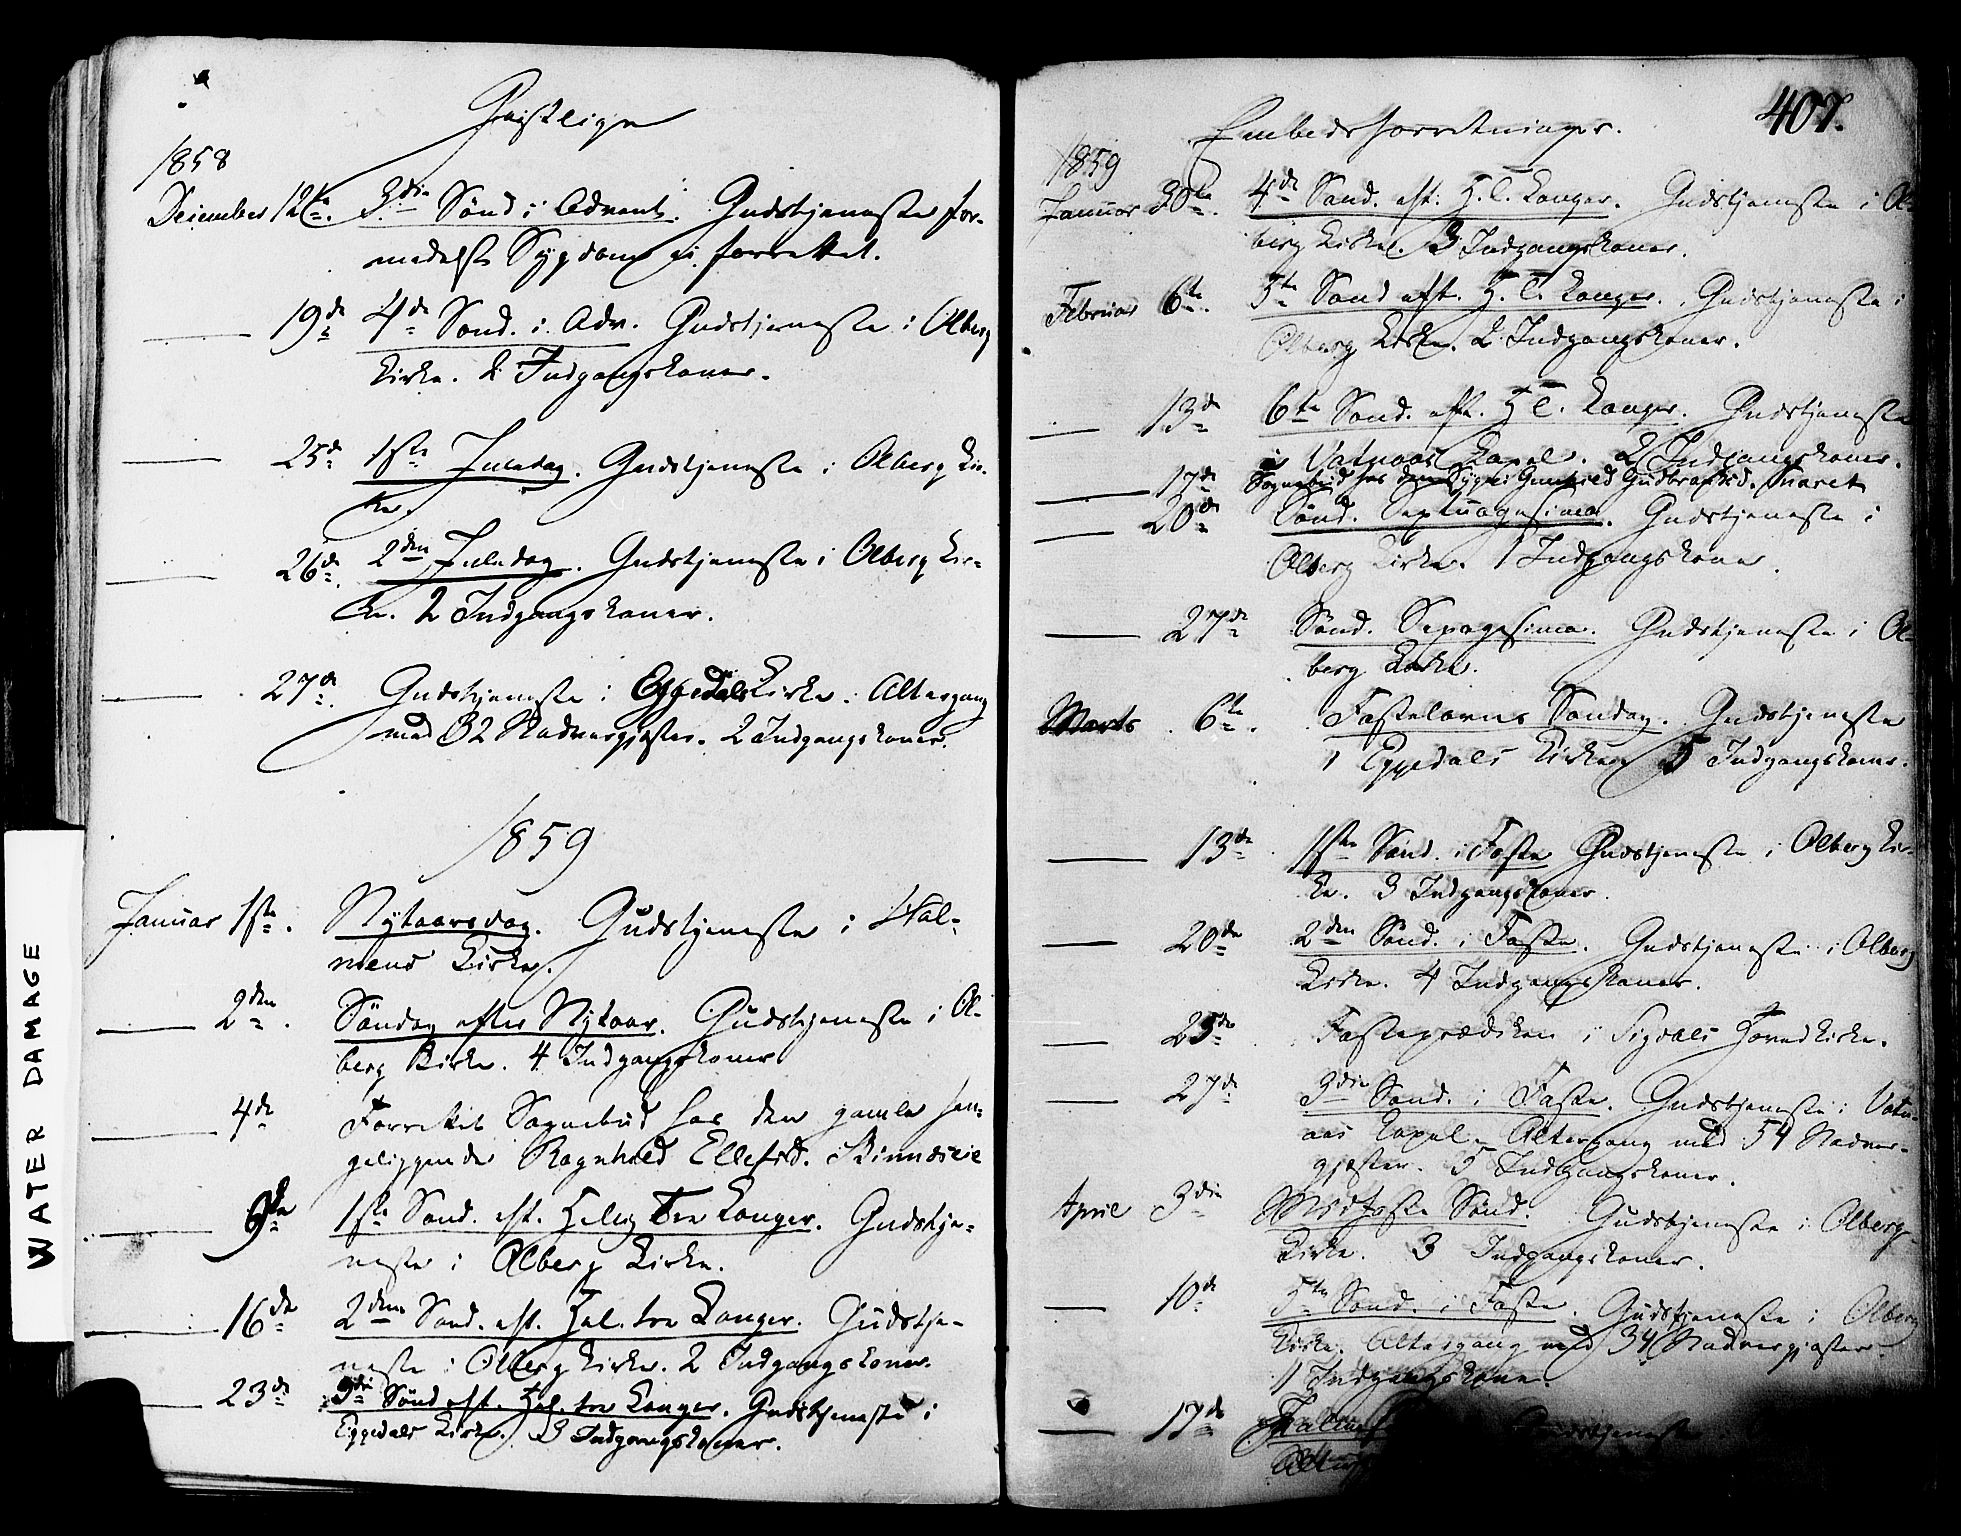 Geistlige
1858
December 12te. 3die Sønd i Advent. Gudstjeneste for-
medelst Sygdom ei forrettet.
19de 4de Sønd. i Adv. Gudstjeneste i Olberg
Kirke. 2 Indgangskoner.
25de 1ste Juledag. Gudstjeneste i Olberg Kir-
ke.
26de. 2den Juledag. Gudstjeneste i Olberg Kir-
ke. 2 Indgangskoner.
27de. Gudstjeneste i Eggedals Kirke. Altergang
med 32 Nadvergjester. 2 Indgangskoner.
1859
Januar 1ste. Nytaarsdag. Gudstjeneste i Hol-
mens Kirke.
2den. Søndag efter Nytaar. Gudstjeneste i Ol-
berg Kirke. 4 Indgangskoner
4de Forrettet Sognebud hos den gamle sen-
geliggende Ragnhild Ellefsd.
9de 1ste Sønd. eft. Hellig Tre Konger. Gudstje-
neste i Olberg Kirke.
16de 2den Sønd. eft. Hel. tre Konger. Gudstje-
neste i Olberg Kirke. 2 Indgangskoner.
23de 3die Sønd eft. Hel. tre Konger. Gudstjeneste i
Eggedals Kirke. 3 Indgangskoner.
WATER DAMAGE
Embedsforretninger.
407.
1859
Januar 30te. 4de Sønd. eft. H. 3. Konger. Gudstjeneste i Ol-
berg Kirke. 3 Indgangskoner.
Februar 6te. 5te Sønd eft. H. 3. Konger. Gudstjeneste i
Olberg Kirke. 2 Indgangskoner.
13de 6te Sønd. eft. H 3. Konger. Gudstjeneste
i Vatnaas Kapel. 2 Indgangskoner.
17de Sognebud hos den syge Gunhild Gudbrandsd.
20de Sønd. Septuagesima. Gudstjeneste i
Olberg Kirke. 1 Indgangskone.
27de Sønd. Sexagesima. Gudstjeneste i Ol-
berg Kirke.
Marts 6te. Fastelavns Søndag. Gudstjeneste
i Eggedals Kirke 5 Indgangskoner.
13de 1ste Sønd. i Faste Gudstjeneste i Olberg Kir-
ke. 3 Indgangskoner.
20de 2den Sønd. i Faste. Gudstjeneste i Olberg
Kirke. 4 Indgangskoner.
25de Fasteprædiken i Sigdals Hovedkirke.
27de 3die Sønd. i Faste. Gudstjeneste i Vatn-
aas Kapel. Altergang med 54 Nadver-
gjester. 5 Indgangskoner.
April 3die Midfaste Sønd. Gudstjeneste i Olberg
Kirke. 3 Indgangskoner.
10de 5te Sønd. i Faste. Gudstjeneste i Olberg
Kirke. Altergang med 34 Nadvergjester.
1 Indgangskone.
17de Gudstjeneste